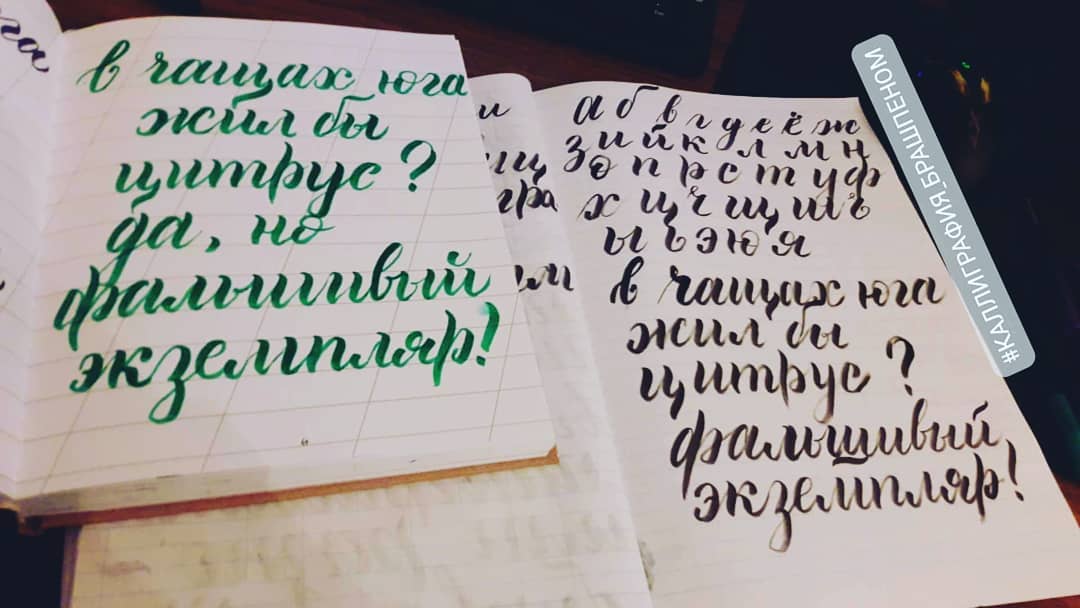 в чащах юга
жил бы
цитрус?
да, но
фальшивый
экземпляр!
а б в г д е ё ж
з и й к л м н
о п р с т у ф
х ц ч щ ш ъ
ы ь э ю я
в чащах юга
жил бы
цитрус?
фальшивый,
экземпляр!
#КАЛЛИГРАФИЯ_БРАШПЕНОМ